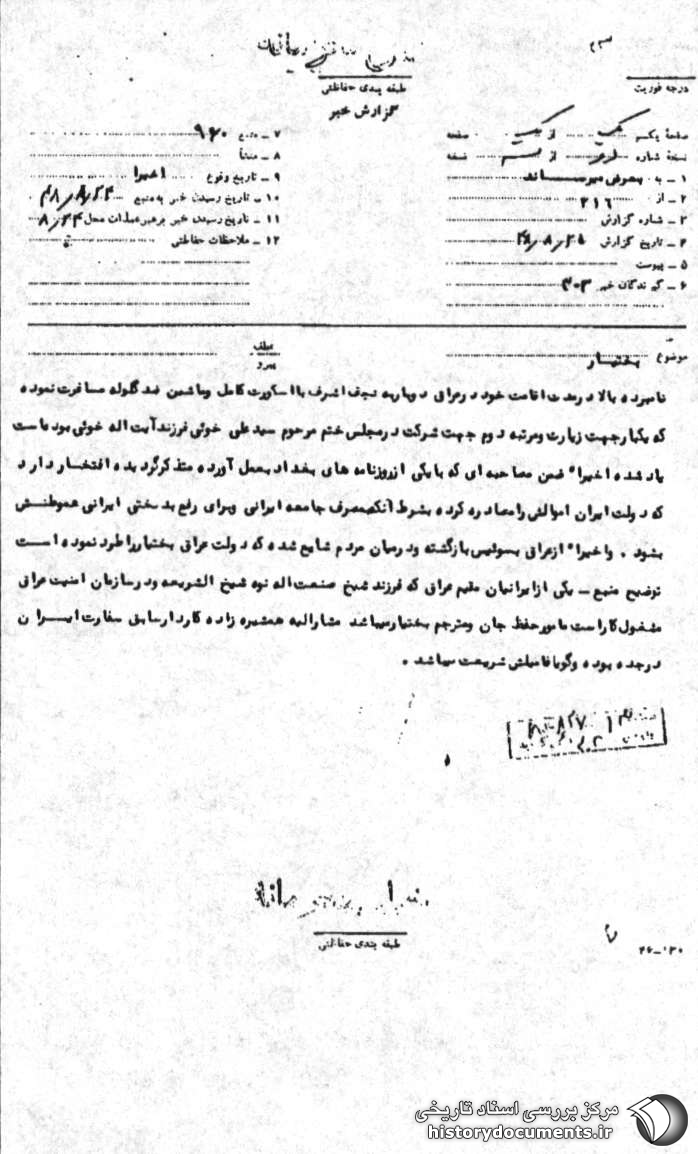 طبقه بندی حفاظتی
درجه فوریت
گزارش خبر
صفحه یک از یک صفحه
نسخه شماره از نسخه
۱ ـ به بعرض میرساند
۲ ـ از ۲۱۶
۳ ـ شماره گزارش
۴ ـ تاریخ گزارش
۵ ـ پیوست
۶ ـ گیرندگان خبر ۴۰۳
۷ ـ منبع ۹۶۰
۸ ـ منشأ
۹ ـ تاریخ وقوع اخیرا
۱۰ ـ تاریخ رسیدن خبر به منبع
۱۱ ـ تاریخ رسیدن خبر برهبر عملیات محل ۸/۲۴
۱۲ ـ ملاحظات حفاظتی
موضوع بختیار
عطف
پیرو
نامبرده بالا در مدت اقامت خود در عراق دوبار به نجف اشرف با اسکورت کامل وماشین ضد گلوله مسافرت نموده
که یکبار جهت زیارت ومرتبه دوم جهت شرکت در مجلس ختم مرحوم سید علی خوئی فرزند آیت اله خوئی بوده است
یاد شده اخیرا" ضمن مصاحبه ای که با یکی از روزنامه های بغداد بعمل آورده متذکر گردیده افتخار دارد
که دولت ایران اموالش را مصادره کرده بشرط آنکه بمصرف جامعه ایرانی وبرای رفع بدبختی ایرانی هموطنش
بشود . واخیرا" از عراق بسوئیس بازگشته ودر میان مردم شایع شده که دولت عراق بختیار را طرد نموده است
توضیح منبع ـ یکی از ایرانیان مقیم عراق که فرزند شیخ صنعت اله نوه شیخ الشریعه ودر سازمان امنیت عراق
مشغول کار است مامور حفظ جان ومترجم بختیار میباشد مشارالیه همشیره زاده کاردار سابق سفارت ایران
در جده بوده وگویا فامیلش شریعت میباشد .
طبقه بندی حفاظتی
۲۶-۱۳۰
مرکز بررسی اسناد تاریخی
historydocuments.ir